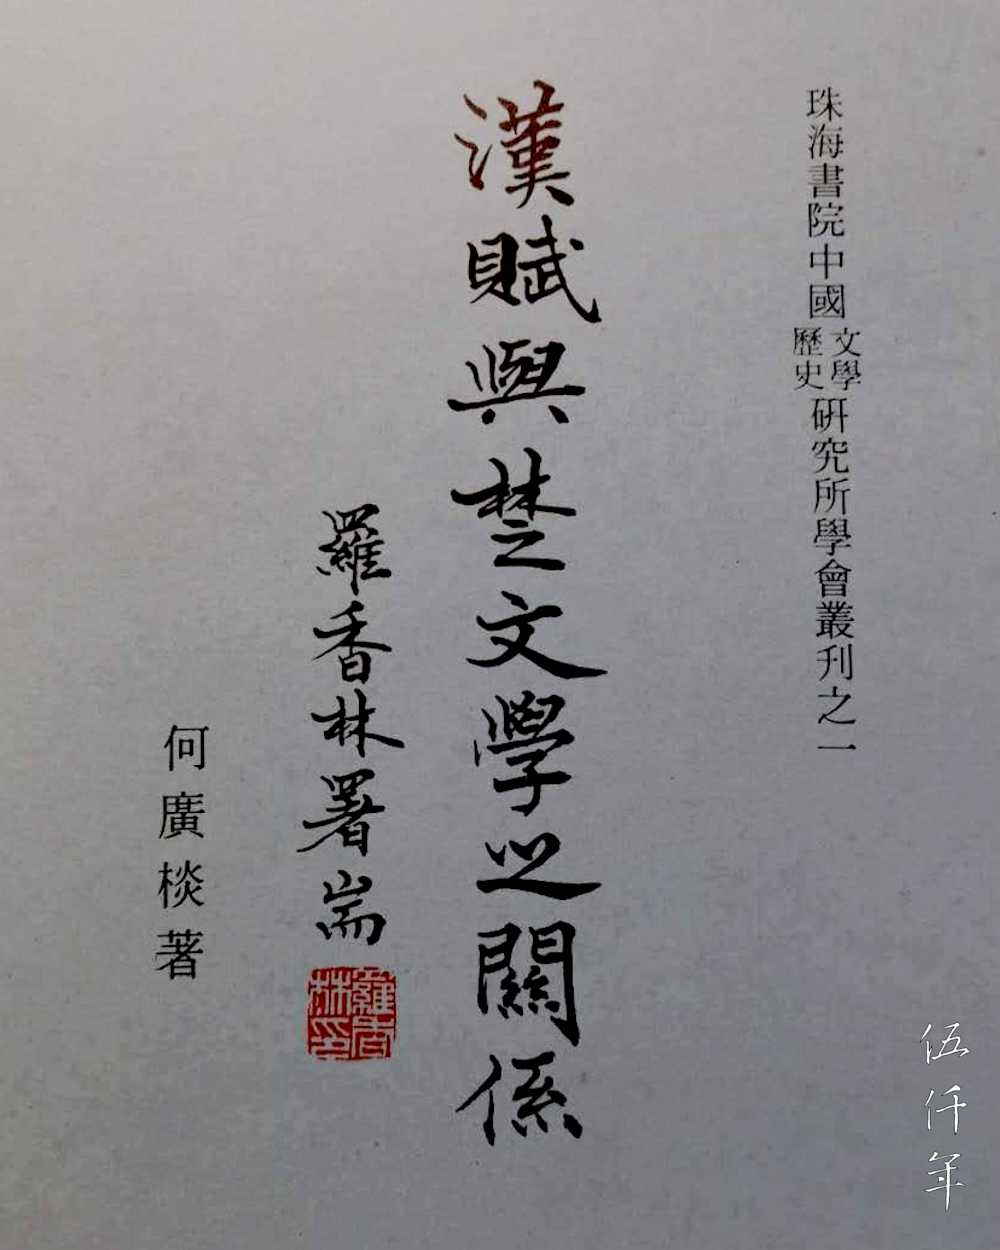 珠海書院中國文學歷史研究所學會叢刊之一
漢賦與楚文學之關係
羅香林署耑
羅香林印
何廣棪著
伍仟年